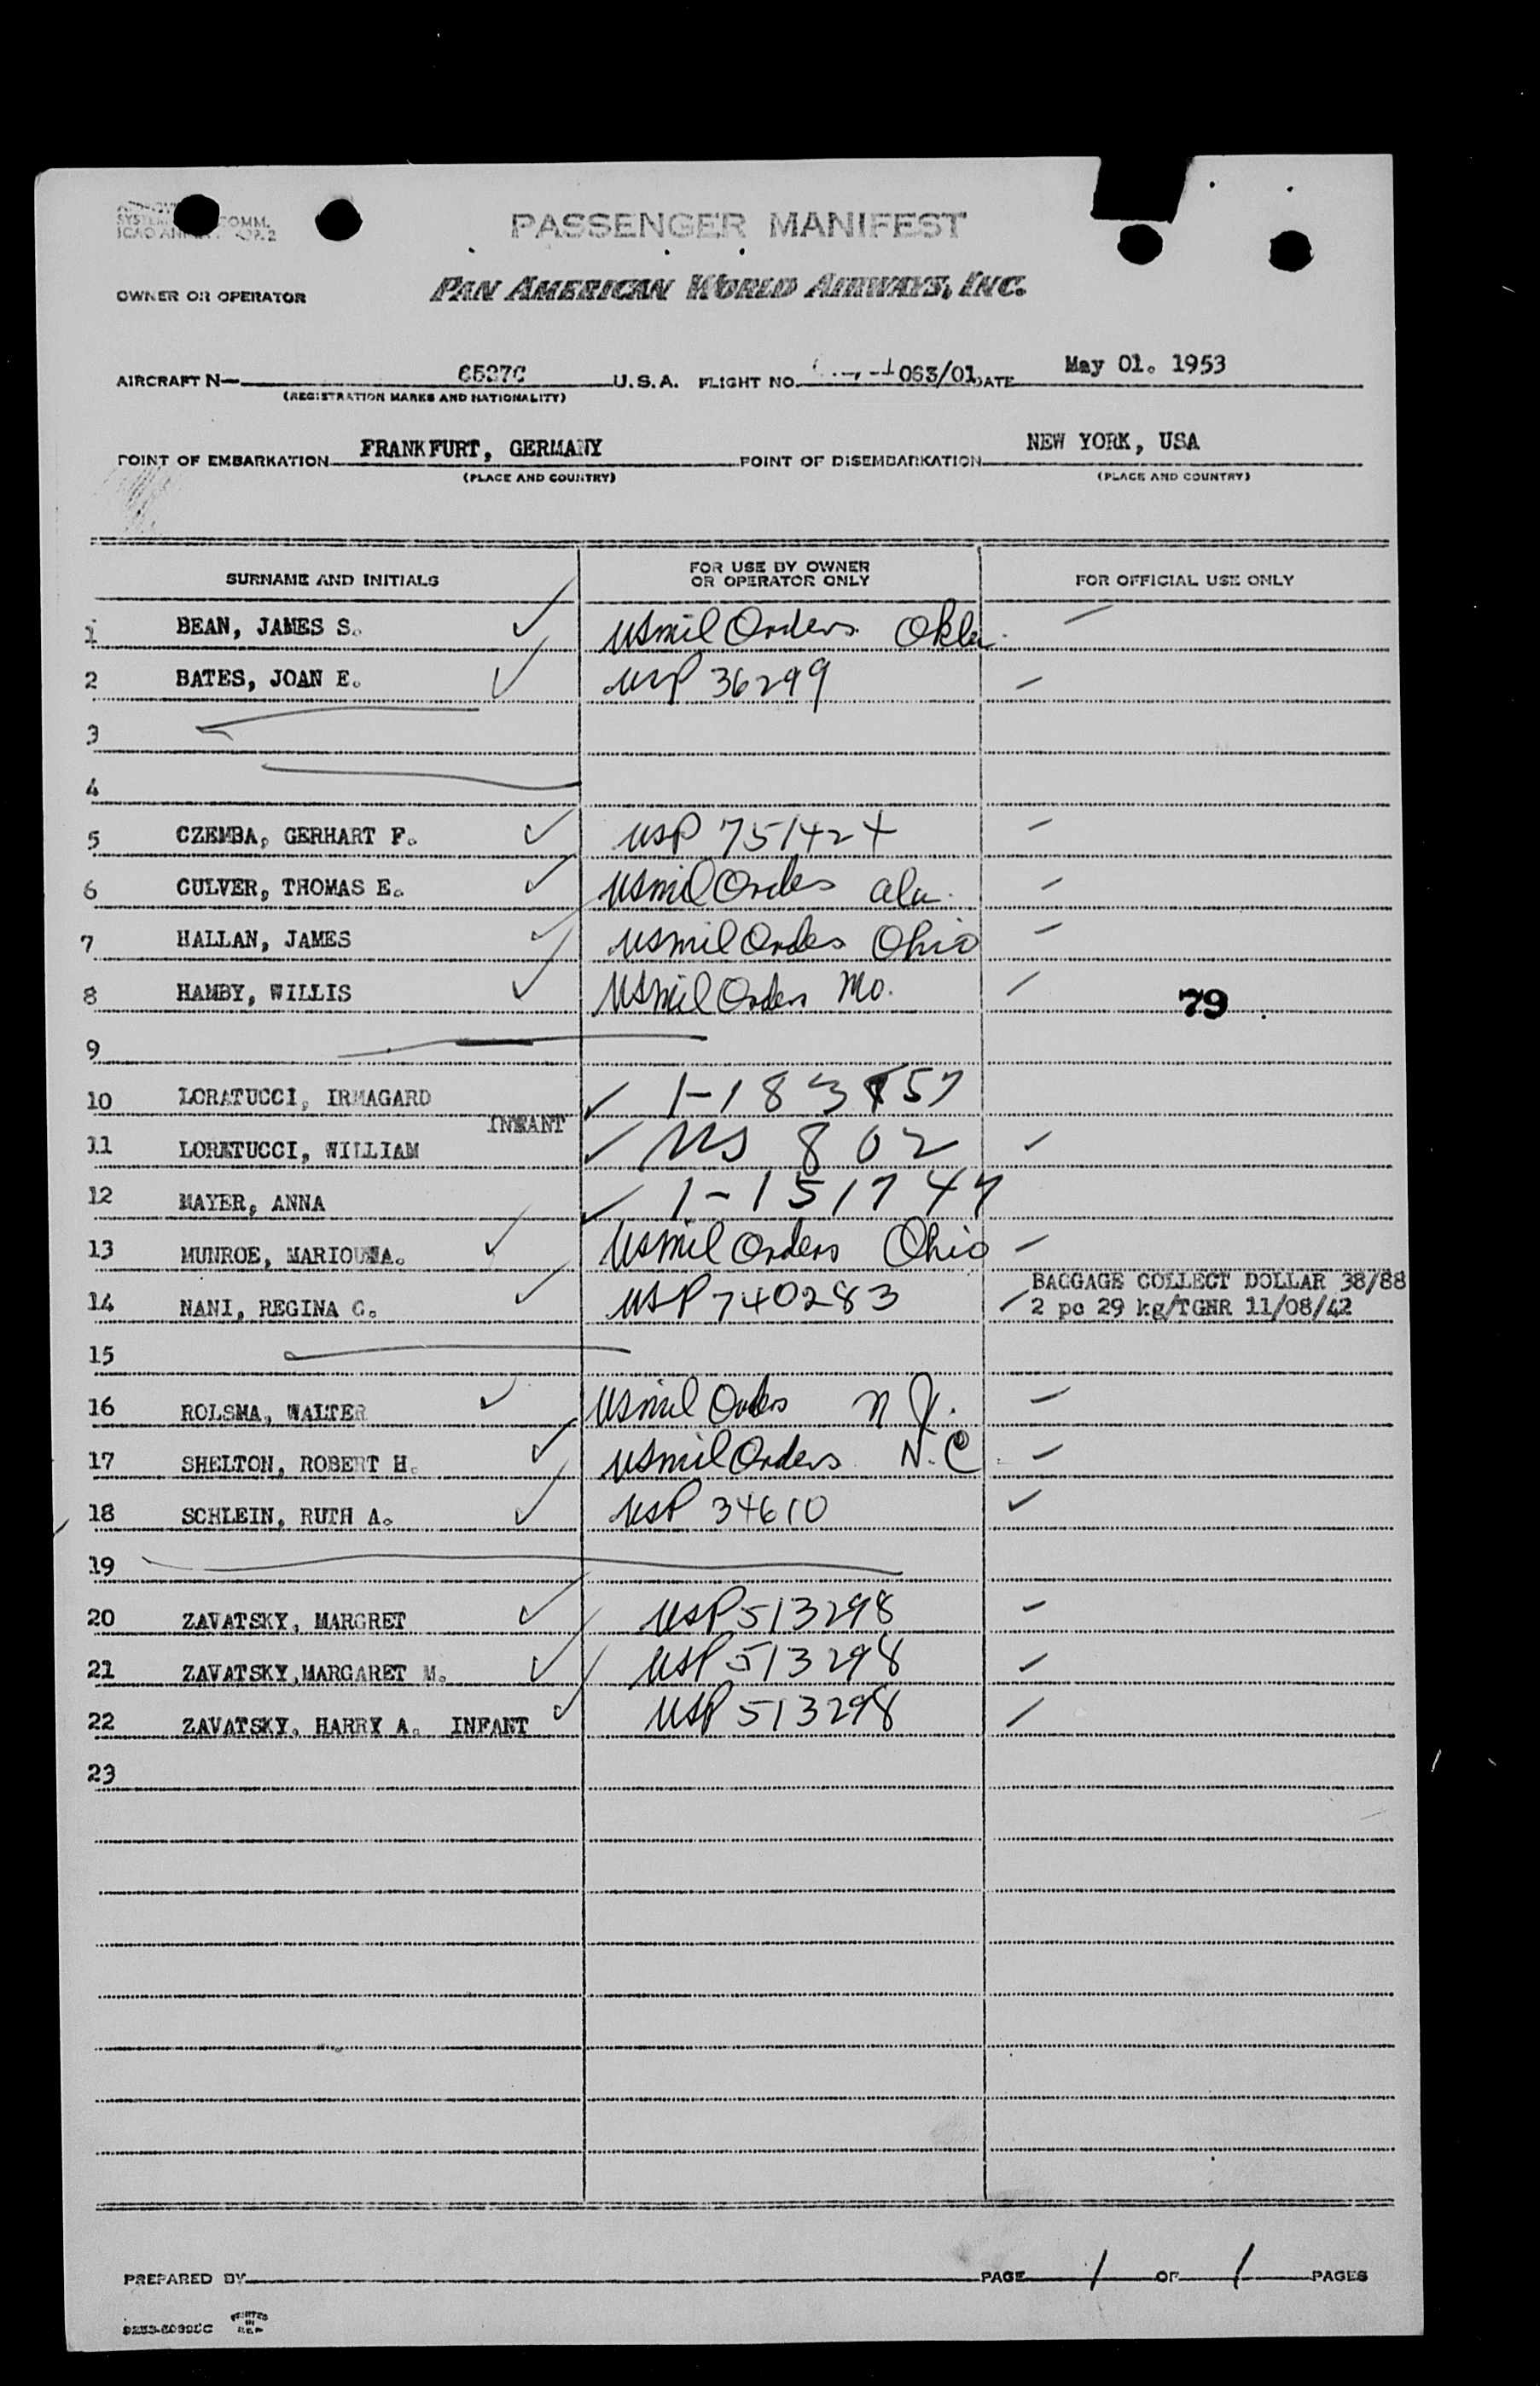 SYSTEM COMM.
ICAO ANNEX 9 APP. 2
PASSENGER MANIFEST
OWNER OR OPERATOR PAN AMERICAN WORLD AIRWAYS, INC.
AIRCRAFT N— U.S.A. FLIGHT NO. 063/01 DATE May 01. 1953
(REGISTRATION MARKS AND NATIONALITY)
POINT OF EMBARKATION FRANKFURT, GERMANY POINT OF DISEMBARKATION NEW YORK, USA
(PLACE AND COUNTRY) (PLACE AND COUNTRY)
SURNAME AND INITIALS FOR USE BY OWNER OR OPERATOR ONLY FOR OFFICIAL USE ONLY
1 BEAN, JAMES S. USmil Orders Okla.
2 BATES, JOAN E. USP 36299
3
4
5 CZEMBA, GERHART F. USP 751424
6 CULVER, THOMAS E. USmil Orders ala.
7 HALLAN, JAMES USmil Orders Ohio
8 HAMBY, WILLIS USmil Orders Mo. 79
9
10 LORATUCCI, IRMAGARD 1-183857
INFANT
11 LORATUCCI, WILLIAM US 802
12 MAYER, ANNA 1-151747
13 MUNROE, USmil Orders Ohio
14 NANI, REGINA C. USP 740283 BAGGAGE COLLECT DOLLAR 38/88
2 pc 29 kg/TGHR 11/08/42
15
16 ROLSMA, WALTER USmil Orders N.J.
17 SHELTON, ROBERT H. USmil Orders N.C.
18 SCHLEIN, RUTH A. USP 34610
19
20 ZAVATSKY, MARGRET USP 513298
21 ZAVATSKY, MARGARET M. USP 513298
22 ZAVATSKY, HARRY A. INFANT USP 513298
23
PREPARED BY PAGE 1 OF 1 PAGES
PRINTED
IN